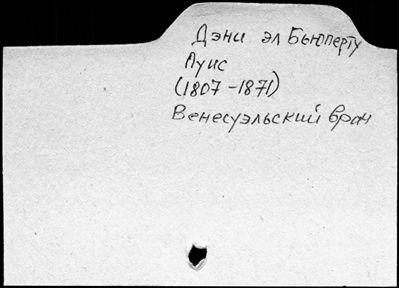 Дэни эл Бьюперту
Луис
(1807-1871)
Венесуэльский врач